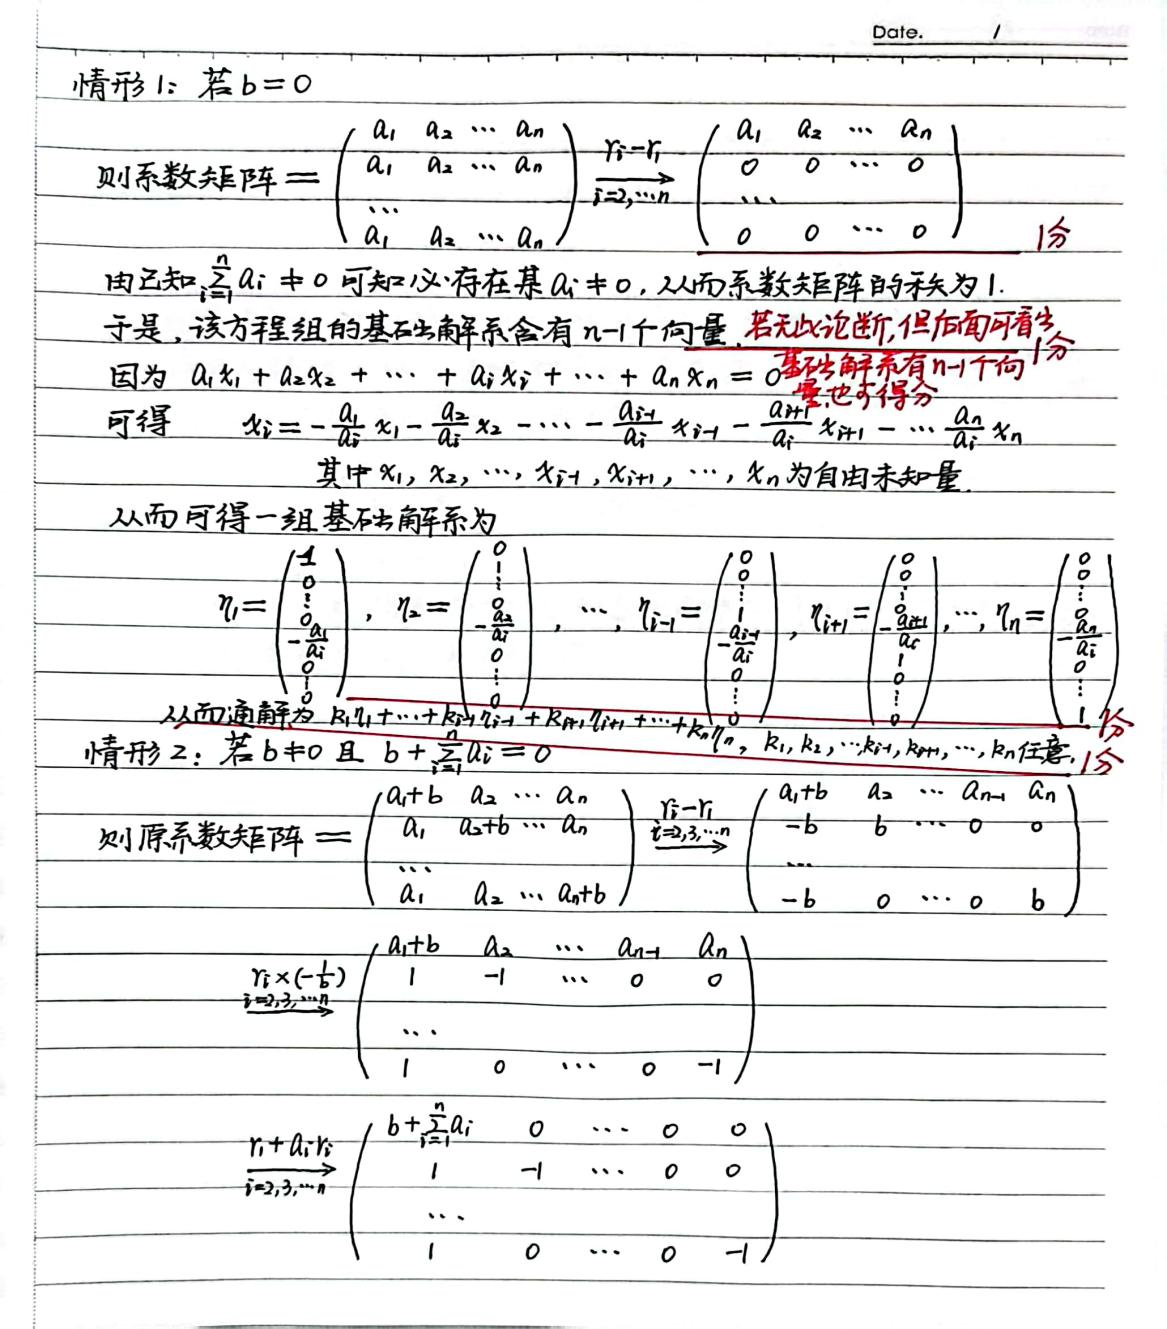 Date. /
情形1: 若 b=0
则系数矩阵 = ( a₁ a₂ ⋯ aₙ ; a₁ a₂ ⋯ aₙ ; ⋯ ; a₁ a₂ ⋯ aₙ ) rᵢ-r₁ → i=2,⋯n ( a₁ a₂ ⋯ aₙ ; 0 0 ⋯ 0 ; ⋯ ; 0 0 ⋯ 0 ) 1分
由已知 ∑ᵢ₌₁ⁿ aᵢ ≠ 0 可知必存在某 aᵢ ≠ 0, 从而系数矩阵的秩为1.
于是, 该方程组的基础解系含有 n-1 个向量. 若无此论断,但后面可看出
基础解系有n-1个向 1分
量,也可得分
因为 a₁x₁ + a₂x₂ + ⋯ + aᵢxᵢ + ⋯ + aₙxₙ = 0
可得 xᵢ = - a₁/aᵢ x₁ - a₂/aᵢ x₂ - ⋯ - aᵢ₋₁/aᵢ xᵢ₋₁ - aᵢ₊₁/aᵢ xᵢ₊₁ - ⋯ aₙ/aᵢ xₙ
其中 x₁, x₂, ⋯, xᵢ₋₁, xᵢ₊₁, ⋯, xₙ 为自由未知量.
从而可得一组基础解系为
η₁ = ( 1 0 ⋮ 0 -a₁/aᵢ 0 ⋮ 0 ), η₂ = ( 0 1 ⋮ 0 -a₂/aᵢ 0 ⋮ 0 ), ⋯, ηᵢ₋₁ = ( 0 0 ⋮ 1 -aᵢ₋₁/aᵢ 0 ⋮ 0 ), ηᵢ₊₁ = ( 0 0 ⋮ 0 -aᵢ₊₁/aᵢ 1 0 ⋮ 0 ), ⋯, ηₙ = ( 0 0 ⋮ 0 -aₙ/aᵢ 0 ⋮ 1 ) 1分
从而通解为 k₁η₁+⋯+kᵢ₋₁ηᵢ₋₁+kᵢ₊₁ηᵢ₊₁+⋯+kₙηₙ, k₁, k₂, ⋯, kᵢ₋₁, kᵢ₊₁, ⋯, kₙ 任意. 1分
情形2: 若 b≠0 且 b + ∑ᵢ₌₁ⁿ aᵢ = 0
则原系数矩阵 = ( a₁+b a₂ ⋯ aₙ ; a₁ a₂+b ⋯ aₙ ; ⋯ ; a₁ a₂ ⋯ aₙ+b ) rᵢ-r₁ → i=2,3,⋯n ( a₁+b a₂ ⋯ aₙ₋₁ aₙ ; -b b ⋯ 0 0 ; ⋯ ; -b 0 ⋯ 0 b )
rᵢ×(-1/b) → i=2,3,⋯n ( a₁+b a₂ ⋯ aₙ₋₁ aₙ ; 1 -1 ⋯ 0 0 ; ⋯ ; 1 0 ⋯ 0 -1 )
r₁+aᵢrᵢ → i=2,3,⋯n ( b+∑ᵢ₌₁ⁿ aᵢ 0 ⋯ 0 0 ; 1 -1 ⋯ 0 0 ; ⋯ ; 1 0 ⋯ 0 -1 )